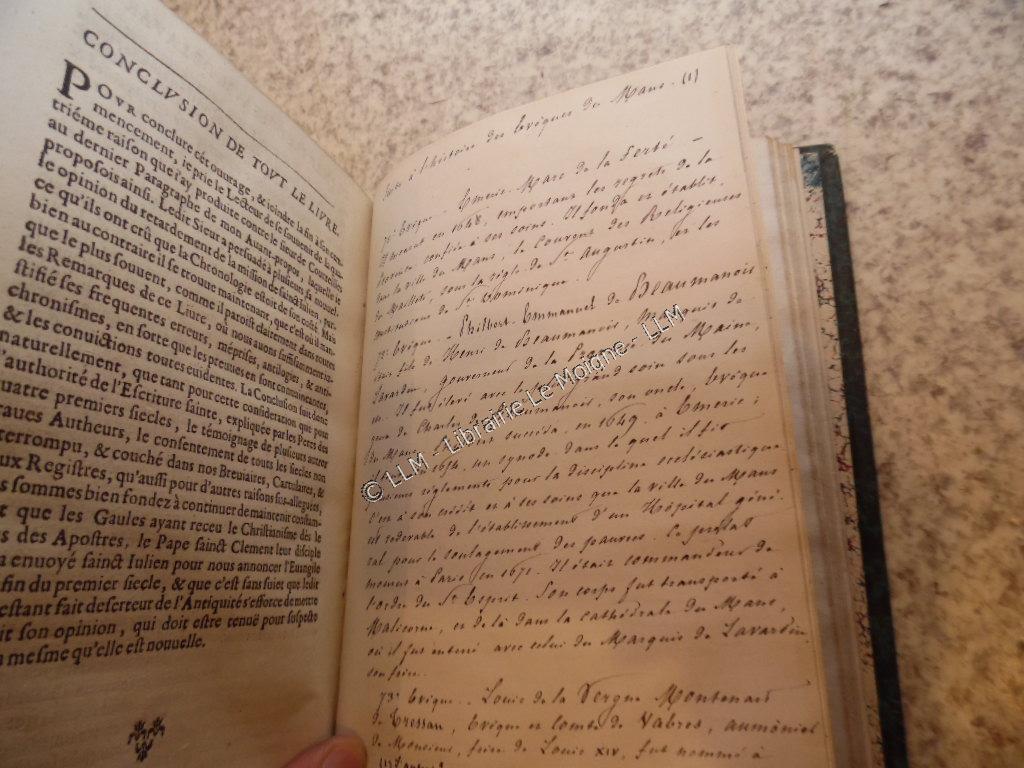 CONCLVSION DE TOVT LE LIVRE.
POVR conclure cét ouurage, & ioindre la fin à son com-
mencement, ie prie le Lecteur de se souuenir de la qua-
triéme raison que i'ay produite contre le sieur de Courceilles
au dernier Paragraphe de mon Auant-propos, laquelle ie
proposois ainsi. Ledit Sieur a persuadé à plusieurs
le opinion du retardement de la mission de sainct Iulien, par-
ce qu'ils ont crû que la Chronologie estoit de son costé. Mais
bien au contraire il se trouue maintenant, que c'est où il man-
que le plus souuent, comme il paroist clairement dans toutes
les Remarques de ce Liure, où nous auons suffisamment iu-
stifié ses frequentes erreurs, méprises, antilogies, & ana-
chronismes, en sorte que les preuues en sont conuainquantes,
& les convictions toutes euidentes. La Conclusion suit donc
naturellement, que tant pour cette consideration que pour
l'authorité de l'Escriture sainte, expliquée par les Peres des
uatre premiers siecles, le témoignage de plusieurs autres
raues Autheurs, le consentement de tous les siecles non
terrompu, & couché dans nos Breuiaires, Cartulaires, &
ux Registres, qu'aussi pour d'autres raisons sus-alleguées,
s sommes bien fondez à continuer de maintenir constam-
t que les Gaules ayant receu le Christianisme dés le
s des Apostres, le Pape sainct Clement leur disciple
a enuoyé sainct Iulien pour nous annoncer l'Euangile
fin du premier siecle, & que c'est sans suiet que ledit
estant fait deserteur de l'Antiquité s'efforce de mettre
it son opinion, qui doit estre tenuë pour suspecte
mesme qu'elle est nouuelle.
Suite à l'histoire des Evêques du Mans. (1)
71e Evêque. Emeric-Marc de la Ferté –
Il mourut en 1648, emportant les regrets de la
confiée à ses soins. Il fonda et établit
dans la ville du Mans, le couvent des Religieuses
de Maillets, sous la règle de St Augustin, et les
constitutions de St Dominique.
72e Evêque. – Philbert-Emmanuel de Beaumanoir
était fils de Henri de Beaumanoir, Marquis de
Lavardin, gouverneur de la Province du Maine,
&c. Il fut élevé avec le plus grand soin sous les
yeux de Charles de Beaumanoir, son oncle, Evêque
du Mans. succéda, en 1649, à Emeric;
1654, un synode, dans lequel il fit
réglements pour la discipline ecclésiastique.
C'est à son crédit et à ses soins que la ville du Mans
est redevable de l'établissement d'un Hôpital géné-
ral pour le soulagement des pauvres. Ce prélat
mourut à Paris en 1671. Il était commandeur de
l'ordre du St Esprit. Son corps fut transporté à
Malicorne, et de là dans la cathédrale du Mans,
où il fut enterré avec celui du Marquis de Lavardin
son frère.
73e Evêque. – Louis de la Vergne Montenard
de Tressan, Evêque et comte de Vabres, aumônier
de Monsieur, frère de Louis XIV, fut nommé à
© LLM - Librairie Le Moigne - LLM